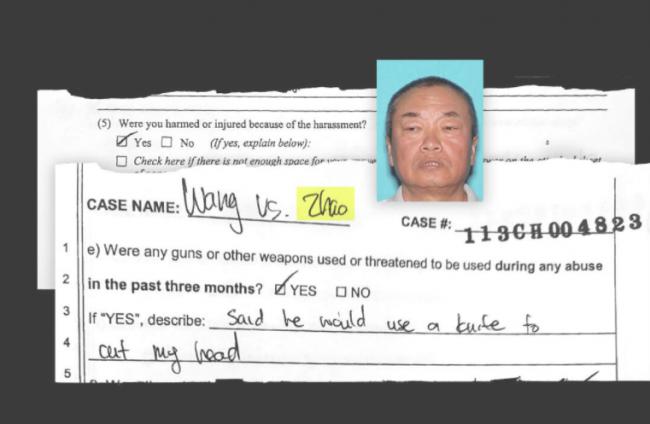 (5) Were you harmed or injured because of the harassment?
☑ Yes ☐ No (If yes, explain below):
☐ Check here if there is not enough space for
CASE NAME: Wang vs. Zhao
CASE #: 113CH004823
1 e) Were any guns or other weapons used or threatened to be used during any abuse
2 in the past three months? ☑ YES ☐ NO
3 If "YES", describe: Said he would use a knife to
4 cut my head
5